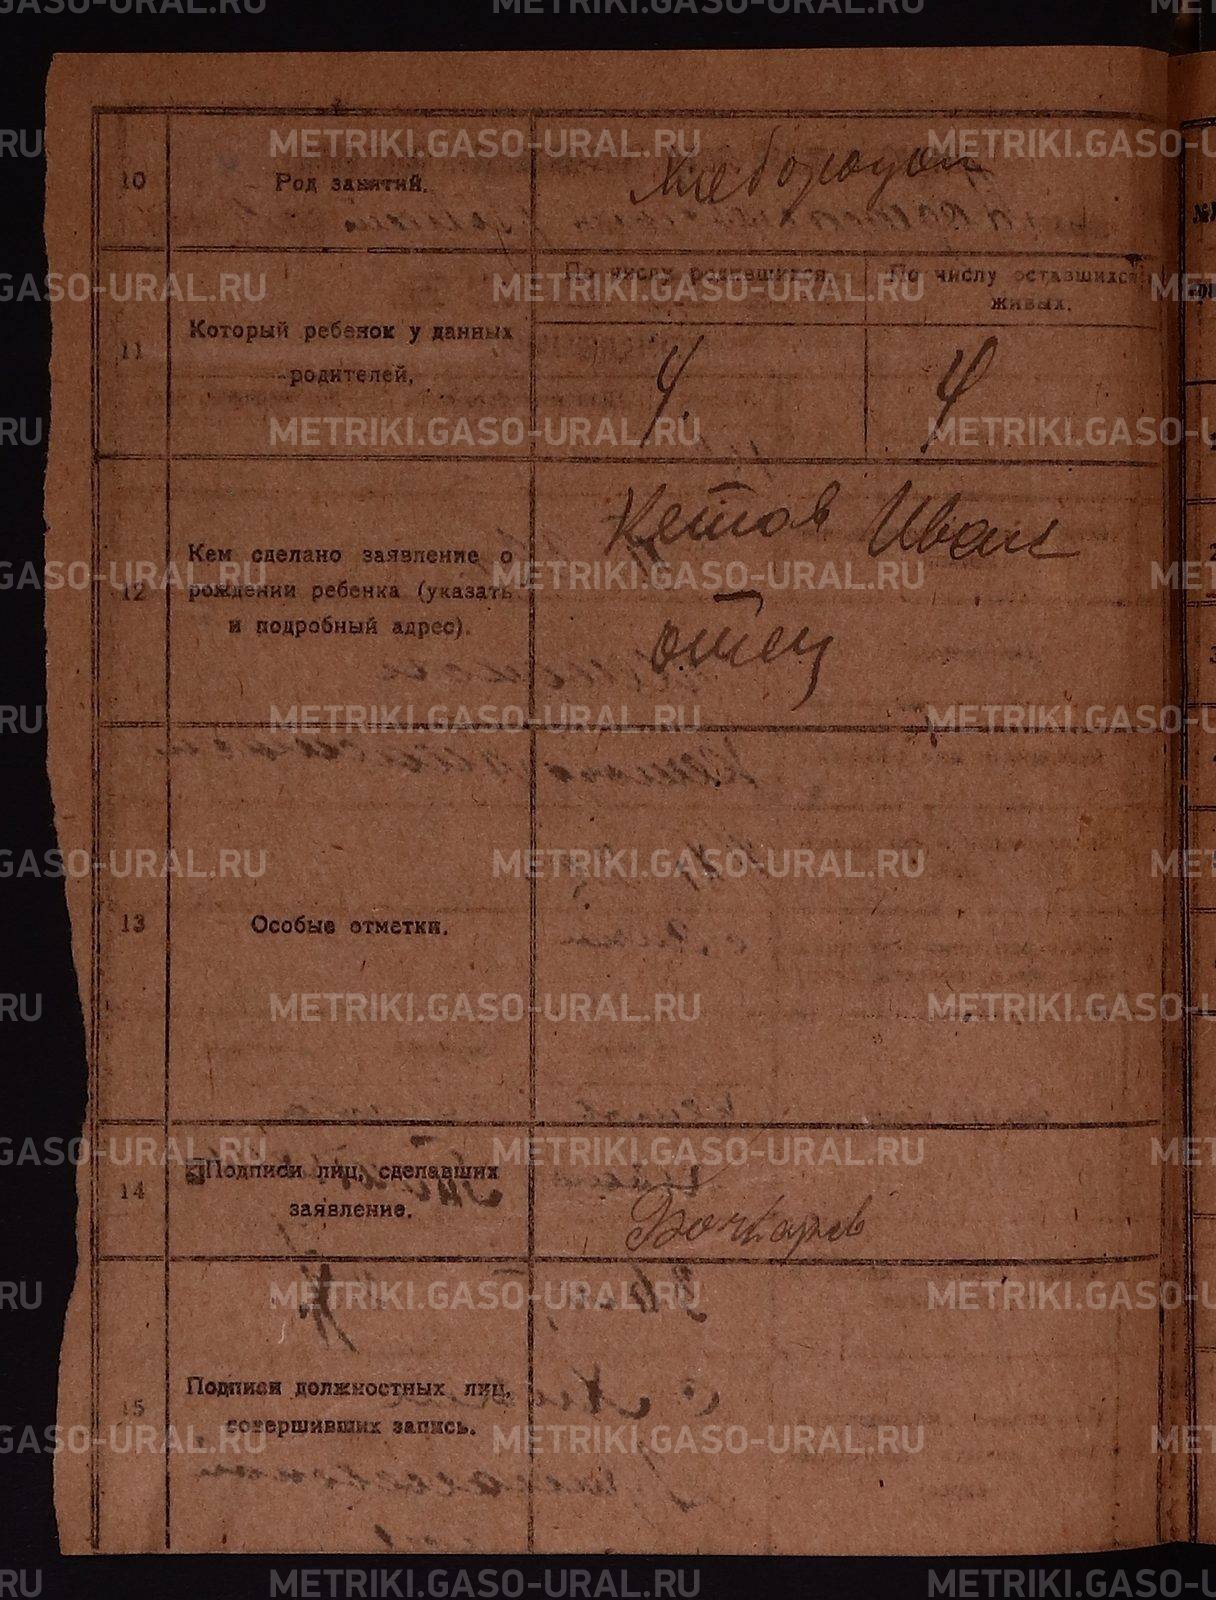 METRIKI.GASO-URAL.RU
10
Род занятий.
Хлебороды
11
Который ребенок у данных
родителей,
По числу родившихся.
По числу оставшихся
живых.
4.
4
12
Кем сделано заявление о
рождении ребенка (указать
и подробный адрес).
Кетов Иван
отец
13
Особые отметки.
14
Подписи лиц, сделавших
заявление.
Бочкарев
15
Подписи должностных лиц,
совершивших запись.